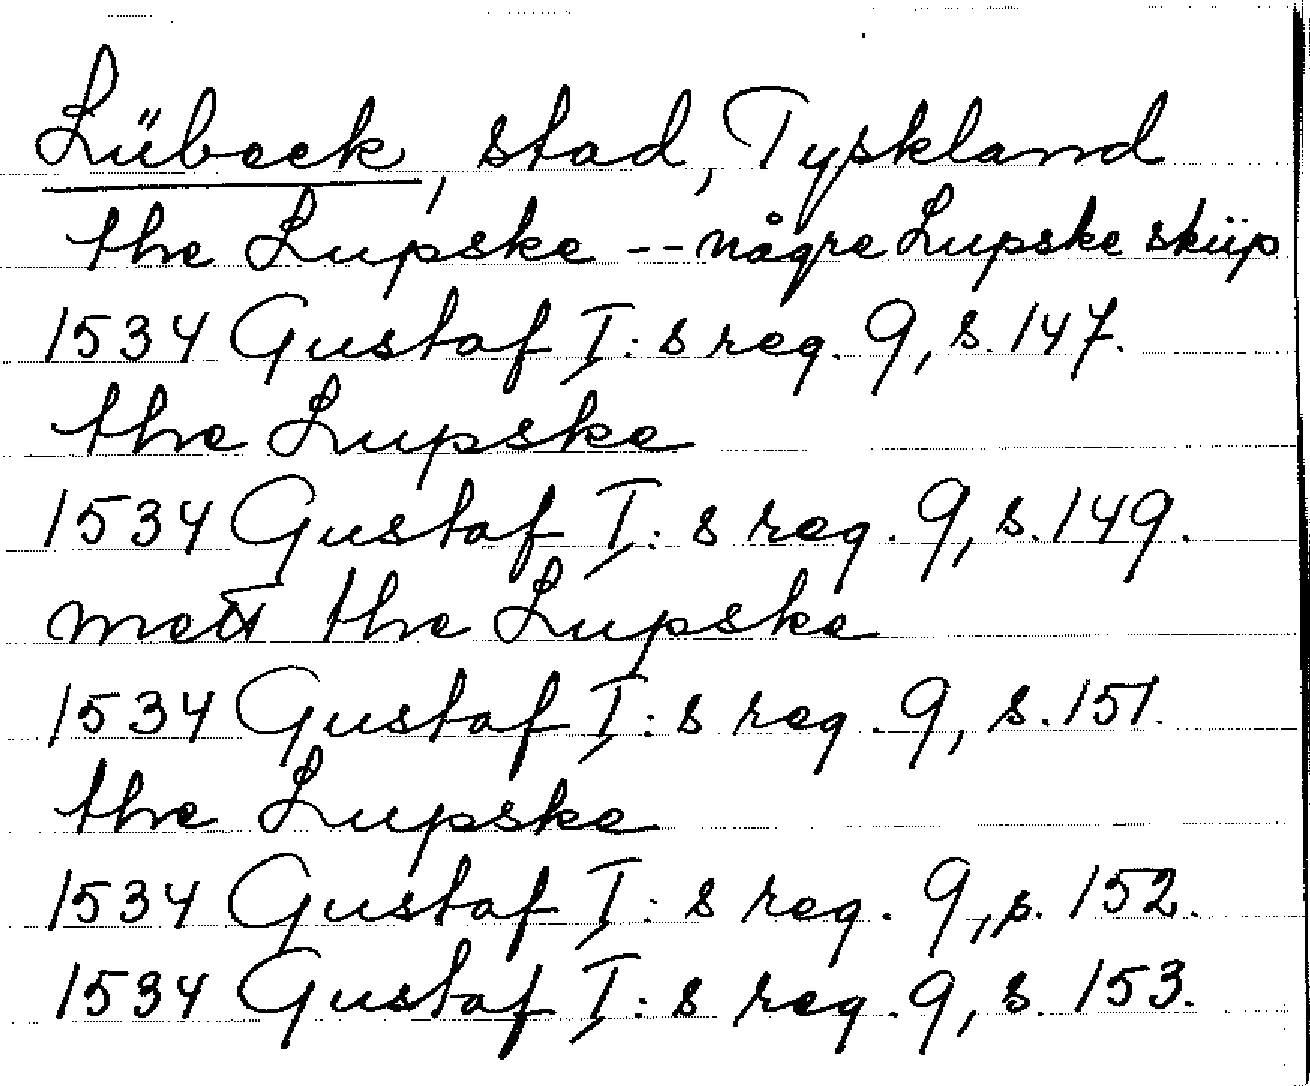 Lübeck, stad, Tyskland
the Lupske -- någre Lupske skiip
1534 Gustaf I:s reg. 9, s. 147.
the Lupske
1534 Gustaf I:s reg. 9, s. 149.
mett the Lupske
1534 Gustaf I:s reg. 9, s. 151.
the Lupske
1534 Gustaf I:s reg. 9, s. 152.
1534 Gustaf I:s reg. 9, s. 153.